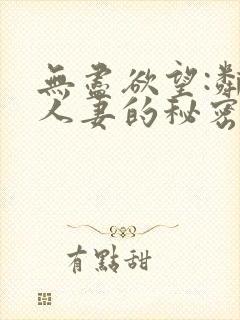 無盡欲望:鄰
人妻的秘密
有點甜